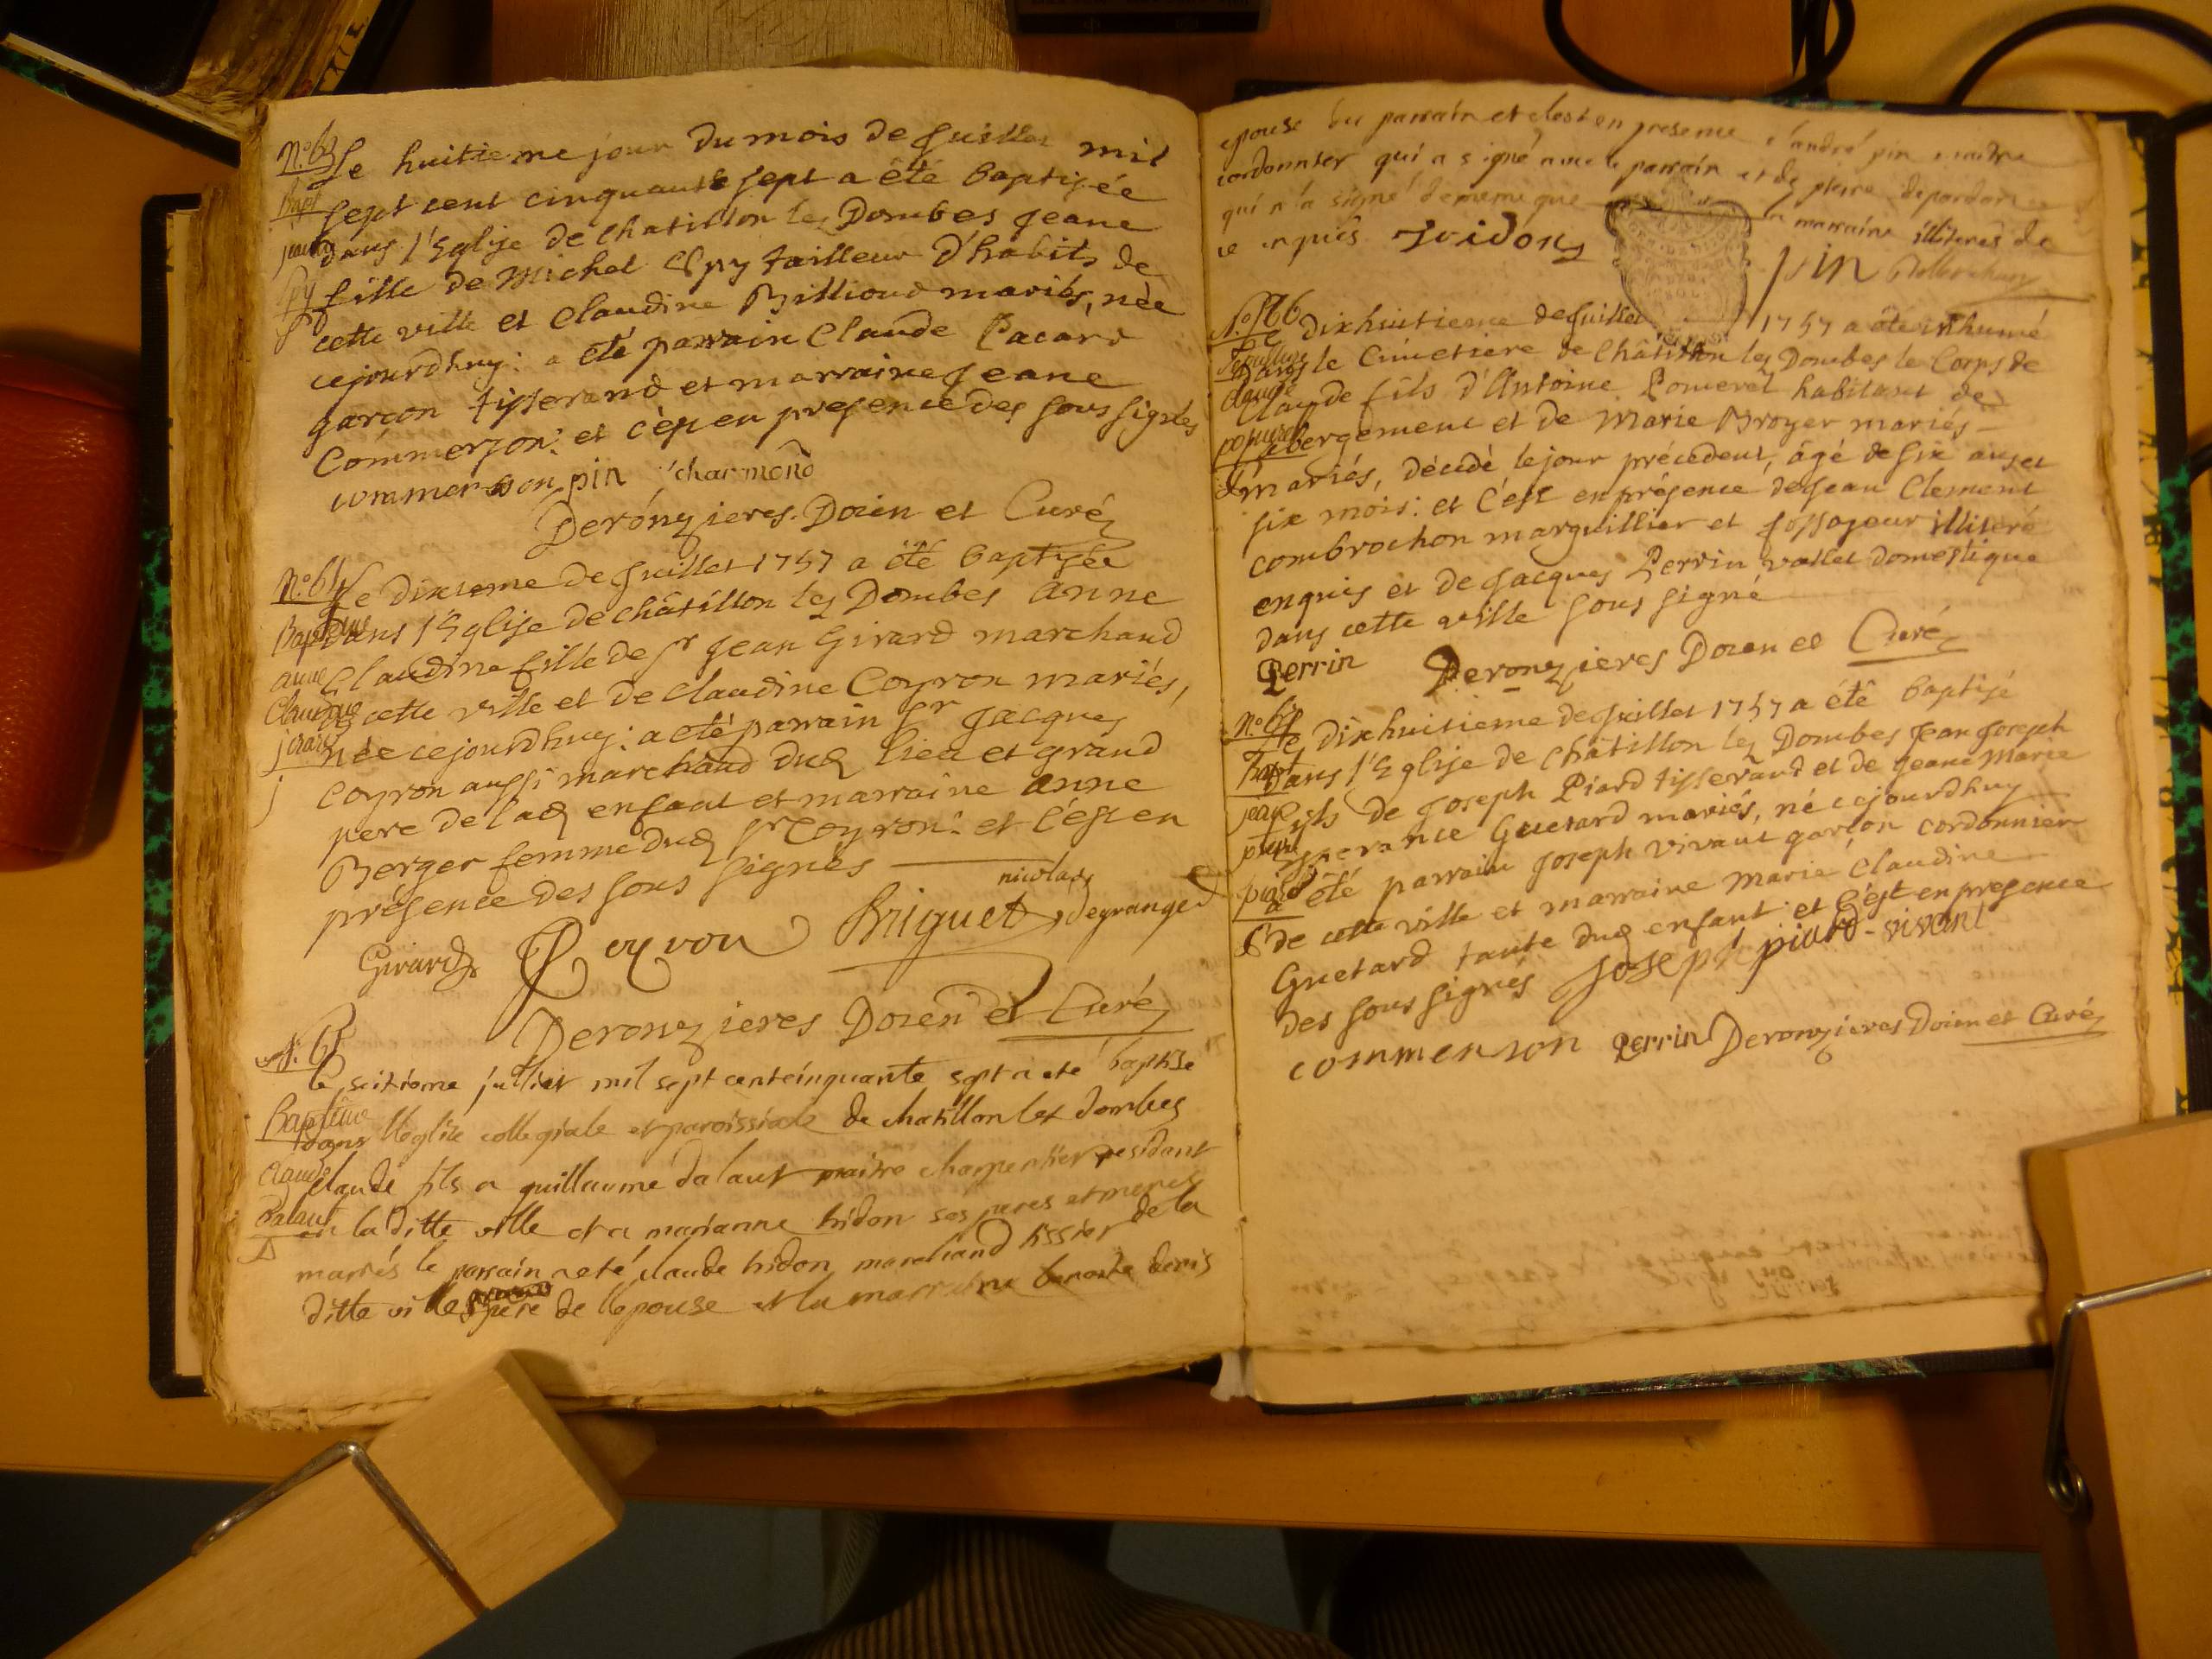 N.o 63 Le huitieme jour du mois de Juillet mil
Bapt sept cent cinquante sept a été baptisée
dans l'Eglise de chatillon les Dombes Jeane
fille de Michel Spy tailleur d'habits de
cette ville et Claudine Billioud mariés, née
cejourdhuy: a été parrain Claude Pacard
garçon tisserand et marraine Jeane
Commerson: et c'est en presence des sous signés
commerson pin charmond
Deronzieres Doïen et Curé
N.o 64 Le dixieme de Juillet 1757 a été baptisée
Bapteme dans l'Eglise de châtillon les Dombes Anne
anne Claudine fille de Sr Jean Girard marchand
Claudine de cette ville et de Claudine Coyron mariés,
née cejourdhuy: a été parrain Sr Jacques
Coyron aussi marchand dud lieu et grand
pere de lad enfant et marraine Anne
Berger femme dud Sr Coyron: et c'est en
présence des sous signés
nicolas
Girard Coyron Briguet degranges
Deronzieres Doïen et Curé
N. 65
le seitieme juillet mil sept cent cinquante sept a eté baptise
Bapteme dans l'eglise collegiale et paroissiale de chatillon les dombes
claude claude fils a guillaume dalaut maitre charpentier residant
dalaut en la ditte ville et a marianne tridon ses peres et meres
mariés le parrain a eté claude tridon marchand tissier de la
ditte ville pere de l'epouse et la marraine benoite denis
epouse du parrain et c'est en presence d'andré pin maitre
cordonnier qui a signé avec le parrain et de pierre
qui n'a signé de meme que la marraine illiteres de
ce enquis tridon pin
N.o 66 Le dixhuitieme de Juillet 1757 a été inhumé
Sepulture dans le Cimetiere de Châtillon les Dombes le Corps de
claude Claude fils d'Antoine Pomerel habitant de
l'abergement et de Marie Broyer mariés
mariés, décédé le jour précedent, âgé de six ans et
six mois: et c'est en présence de Jean Clement
combrochon marguillier et fossoyeur illiteré
enquis et de Jacques Perrin vallet domestique
dans cette ville sous signé
Perrin Deronzieres Doïen et Curé
N.o 67 Le dixhuitieme de Juillet 1757 a été baptisé
Bapt dans l'Eglise de Châtillon les Dombes Jean Joseph
jean fils de Joseph Piard tisserand et de Jeane Marie
Esperance Guetard mariés, né cejourdhuy
piard a été parrain Joseph vivant garçon cordonnier
de cette ville et marraine Marie Claudine
Guetard tante dud enfant: et c'est en presence
des sous signés Joseph piard - vivant
commerson Perrin Deronzieres Doïen et Curé